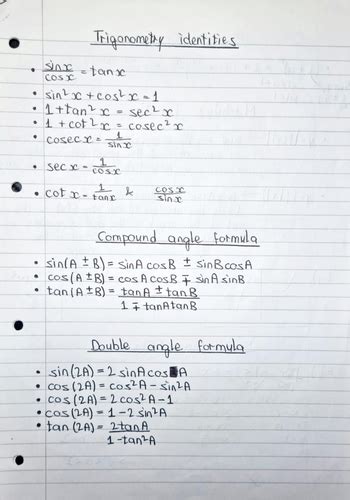 Trigonometry identities
• sinx/cosx = tanx
• sin²x + cos²x = 1
• 1 + tan²x = sec²x
• 1 + cot²x = cosec²x
• cosecx = 1/sinx
• secx = 1/cosx
• cotx = 1/tanx & cosx/sinx
Compound angle formula
• sin(A ± B) = sinAcosB ± sinBcosA
• cos(A ± B) = cosAcosB ∓ sinAsinB
• tan(A ± B) = tanA ± tanB
1 ∓ tanAtanB
Double angle formula
• sin(2A) = 2sinAcosA
• cos(2A) = cos²A - sin²A
• cos(2A) = 2cos²A - 1
• cos(2A) = 1 - 2sin²A
• tan(2A) = 2tanA
1 - tan²A